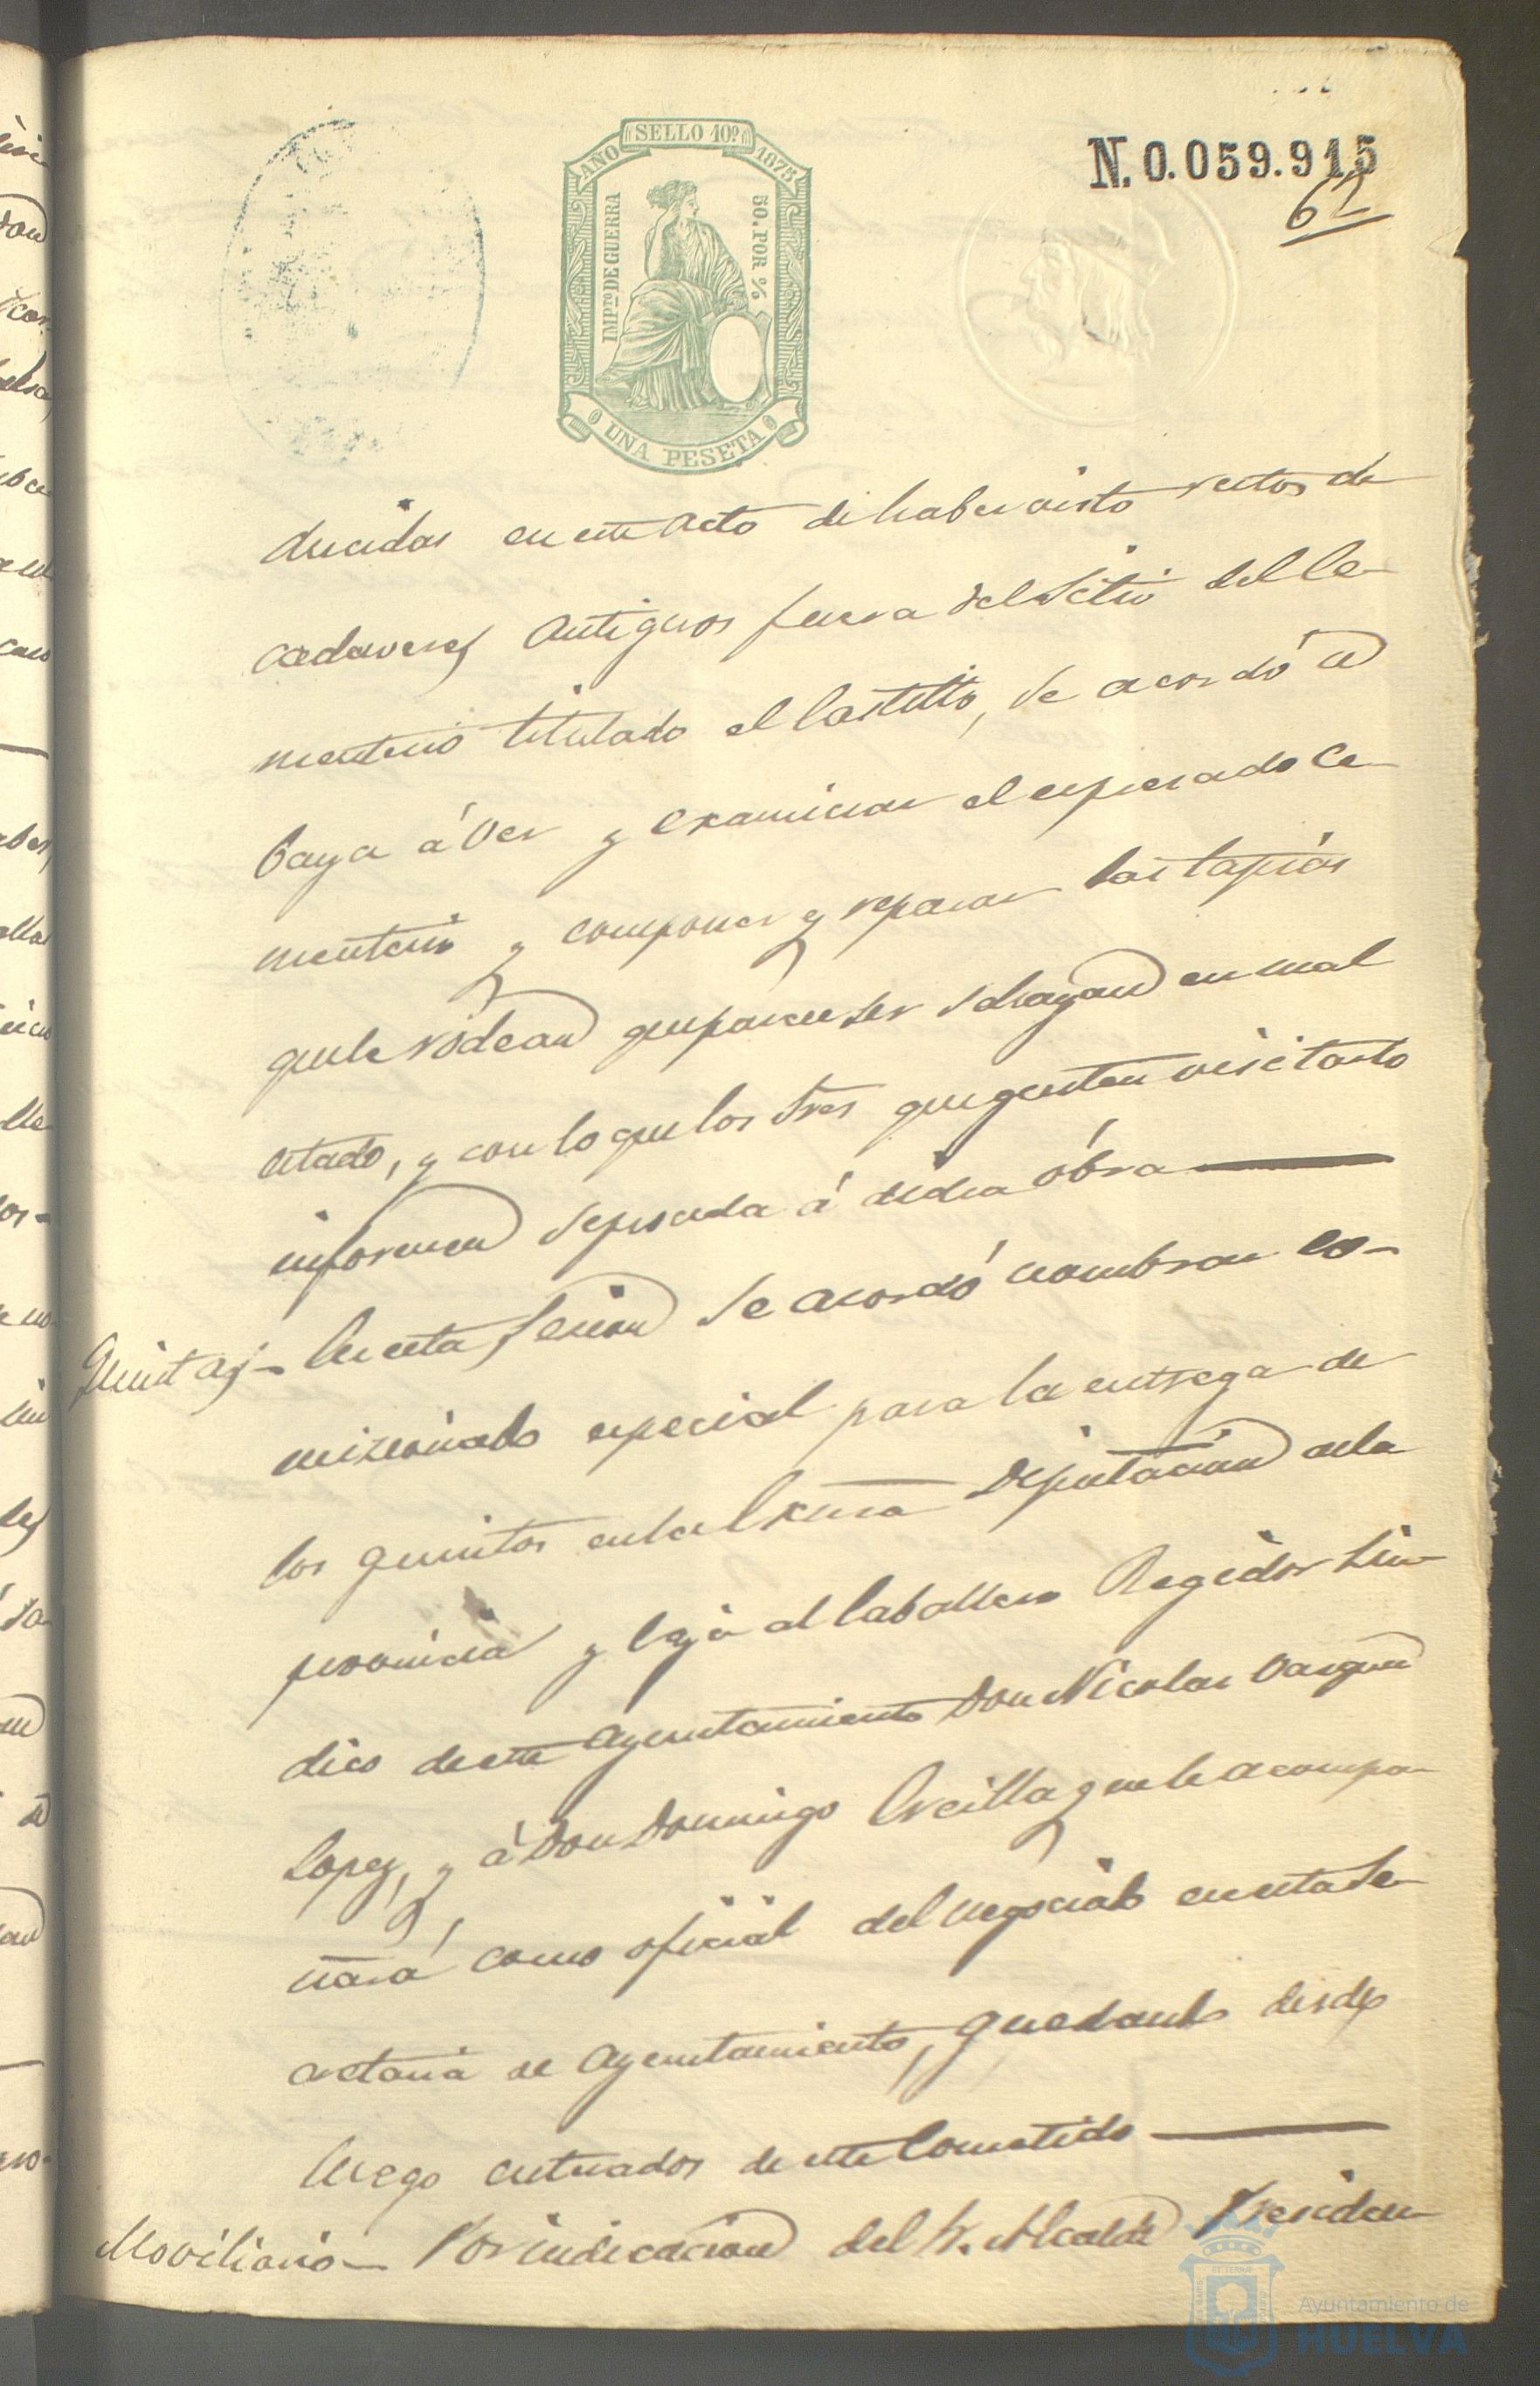 SELLO 10º
AÑO 1875
IMPTO DE GUERRA
50. POR %
UNA PESETA
N. 0.059.915
62
ducidas en este acto de haber visto restos de
cadaveres antiguos fuera del sitio del Ce-
menterio titulado el Castillo, se acordó
baya á ver y examinar el espresado Ce-
menterio y componer y reparar las tapias
que le rodean que parece ser se hayan en mal
estado, y con lo que los tres que gusten visitarlo
informen se proceda á dicha óbra
Quintas - En esta sesion se acordó nombrar co-
misionado especial para la entrega de
los quintos en la Excma Diputacion de la
provincia y eligio al Caballero Regidor Sin-
dico de este Ayuntamiento Don Nicolas Vazquez
Lopez, y á Don Domingo Arcilla que le acompa-
ñará como oficial del negociado en esta Se-
cretaria de Ayuntamiento, quedando desde
luego enterados de este Cometido
Moviliario - Por indicacion del Sr. Alcalde Presiden-
Ayuntamiento de
HUELVA